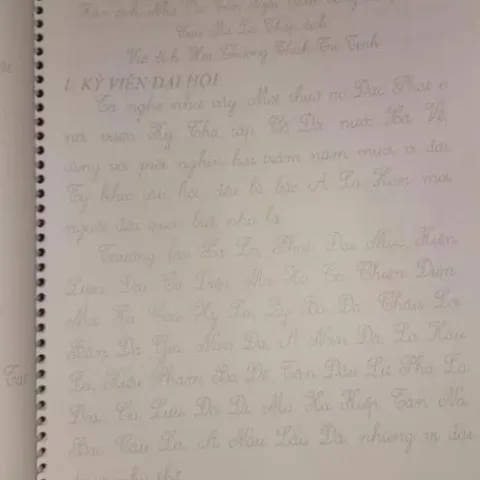 Hán dịch Như Dao Tần
Cưu Ma La Thập dịch
Việt dịch Hòa Thượng Thích Trí Tịnh
1. KỲ VIÊN ĐẠI HỘI
Ta nghe như vầy Một thuở nọ Đức Phật ở
nơi vườn Kỳ Thọ Cấp Cô Độc nước Xá Vệ
cùng với một nghìn hai trăm năm mươi vị đại
Tỳ kheo câu hội đều là bậc A La Hán mọi
người đều quen biết như là
Trưởng lão Xá Lợi Phất Đại Mục Kiền
Liên Đại Ca Diếp Ma Ha Ca Chiên Diên
Ma Ha Câu Hy La Ly Bà Đa Châu Lợi
Bàn Đà Già Nan Đà A Nan Đà La Hầu
La Kiều Phạm Ba Đề Tân Đầu Lư Phả La
Đọa Ca Lưu Đà Di Ma Ha Kiếp Tân Na
Bạc Câu La A Nâu Lâu Đà những vị đại